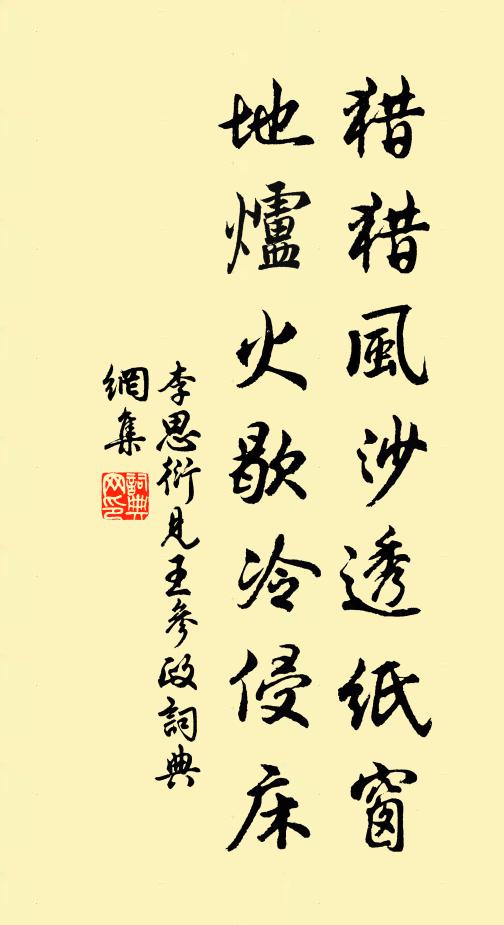 猎猎風沙透紙窗
地爐火歇冷侵床
李思衍見王參政詞典
網集
詞典网印